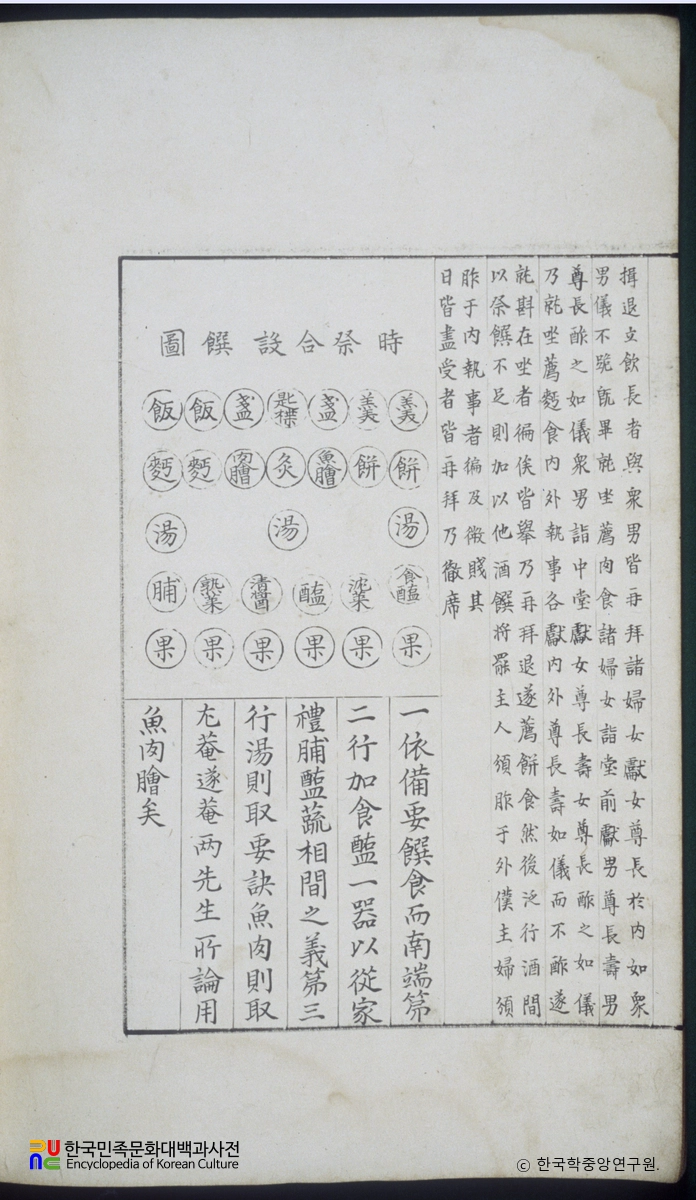 揖退立飲長者與衆男皆再拜諸婦女獻女尊長於內如衆
男儀不跪旣畢就坐薦肉食諸婦女詣堂前獻男尊長壽男
尊長酢之如儀衆男詣中堂獻女尊長壽女尊長酢之如儀
乃就坐薦麪食內外執事各獻內外尊長壽如儀而不酢遂
就斟在坐者徧俟皆擧乃再拜退遂薦餠食然後泛行酒間
以祭饌不足則加以他酒饌將罷主人頒胙于外僕主婦頒
胙于內執事者徧及微賤其
日皆盡受者皆再拜乃徹席
時祭合設饌圖
羹 羹 盞 匙楪 盞 飯 飯
餠 餠 魚膾 炙 肉膾 麪 麪
湯 湯 湯
食醢 沈菜 醢 淸醬 熟菜 脯
果 果 果 果 果 果
一依備要饌食而南端第
二行加食醢一器以從家
禮脯醢蔬相間之義第三
行湯則取要訣魚肉則取
尤菴遂菴两先生所論用
魚肉膾矣
한국민족문화대백과사전
Encyclopedia of Korean Culture
© 한국학중앙연구원.